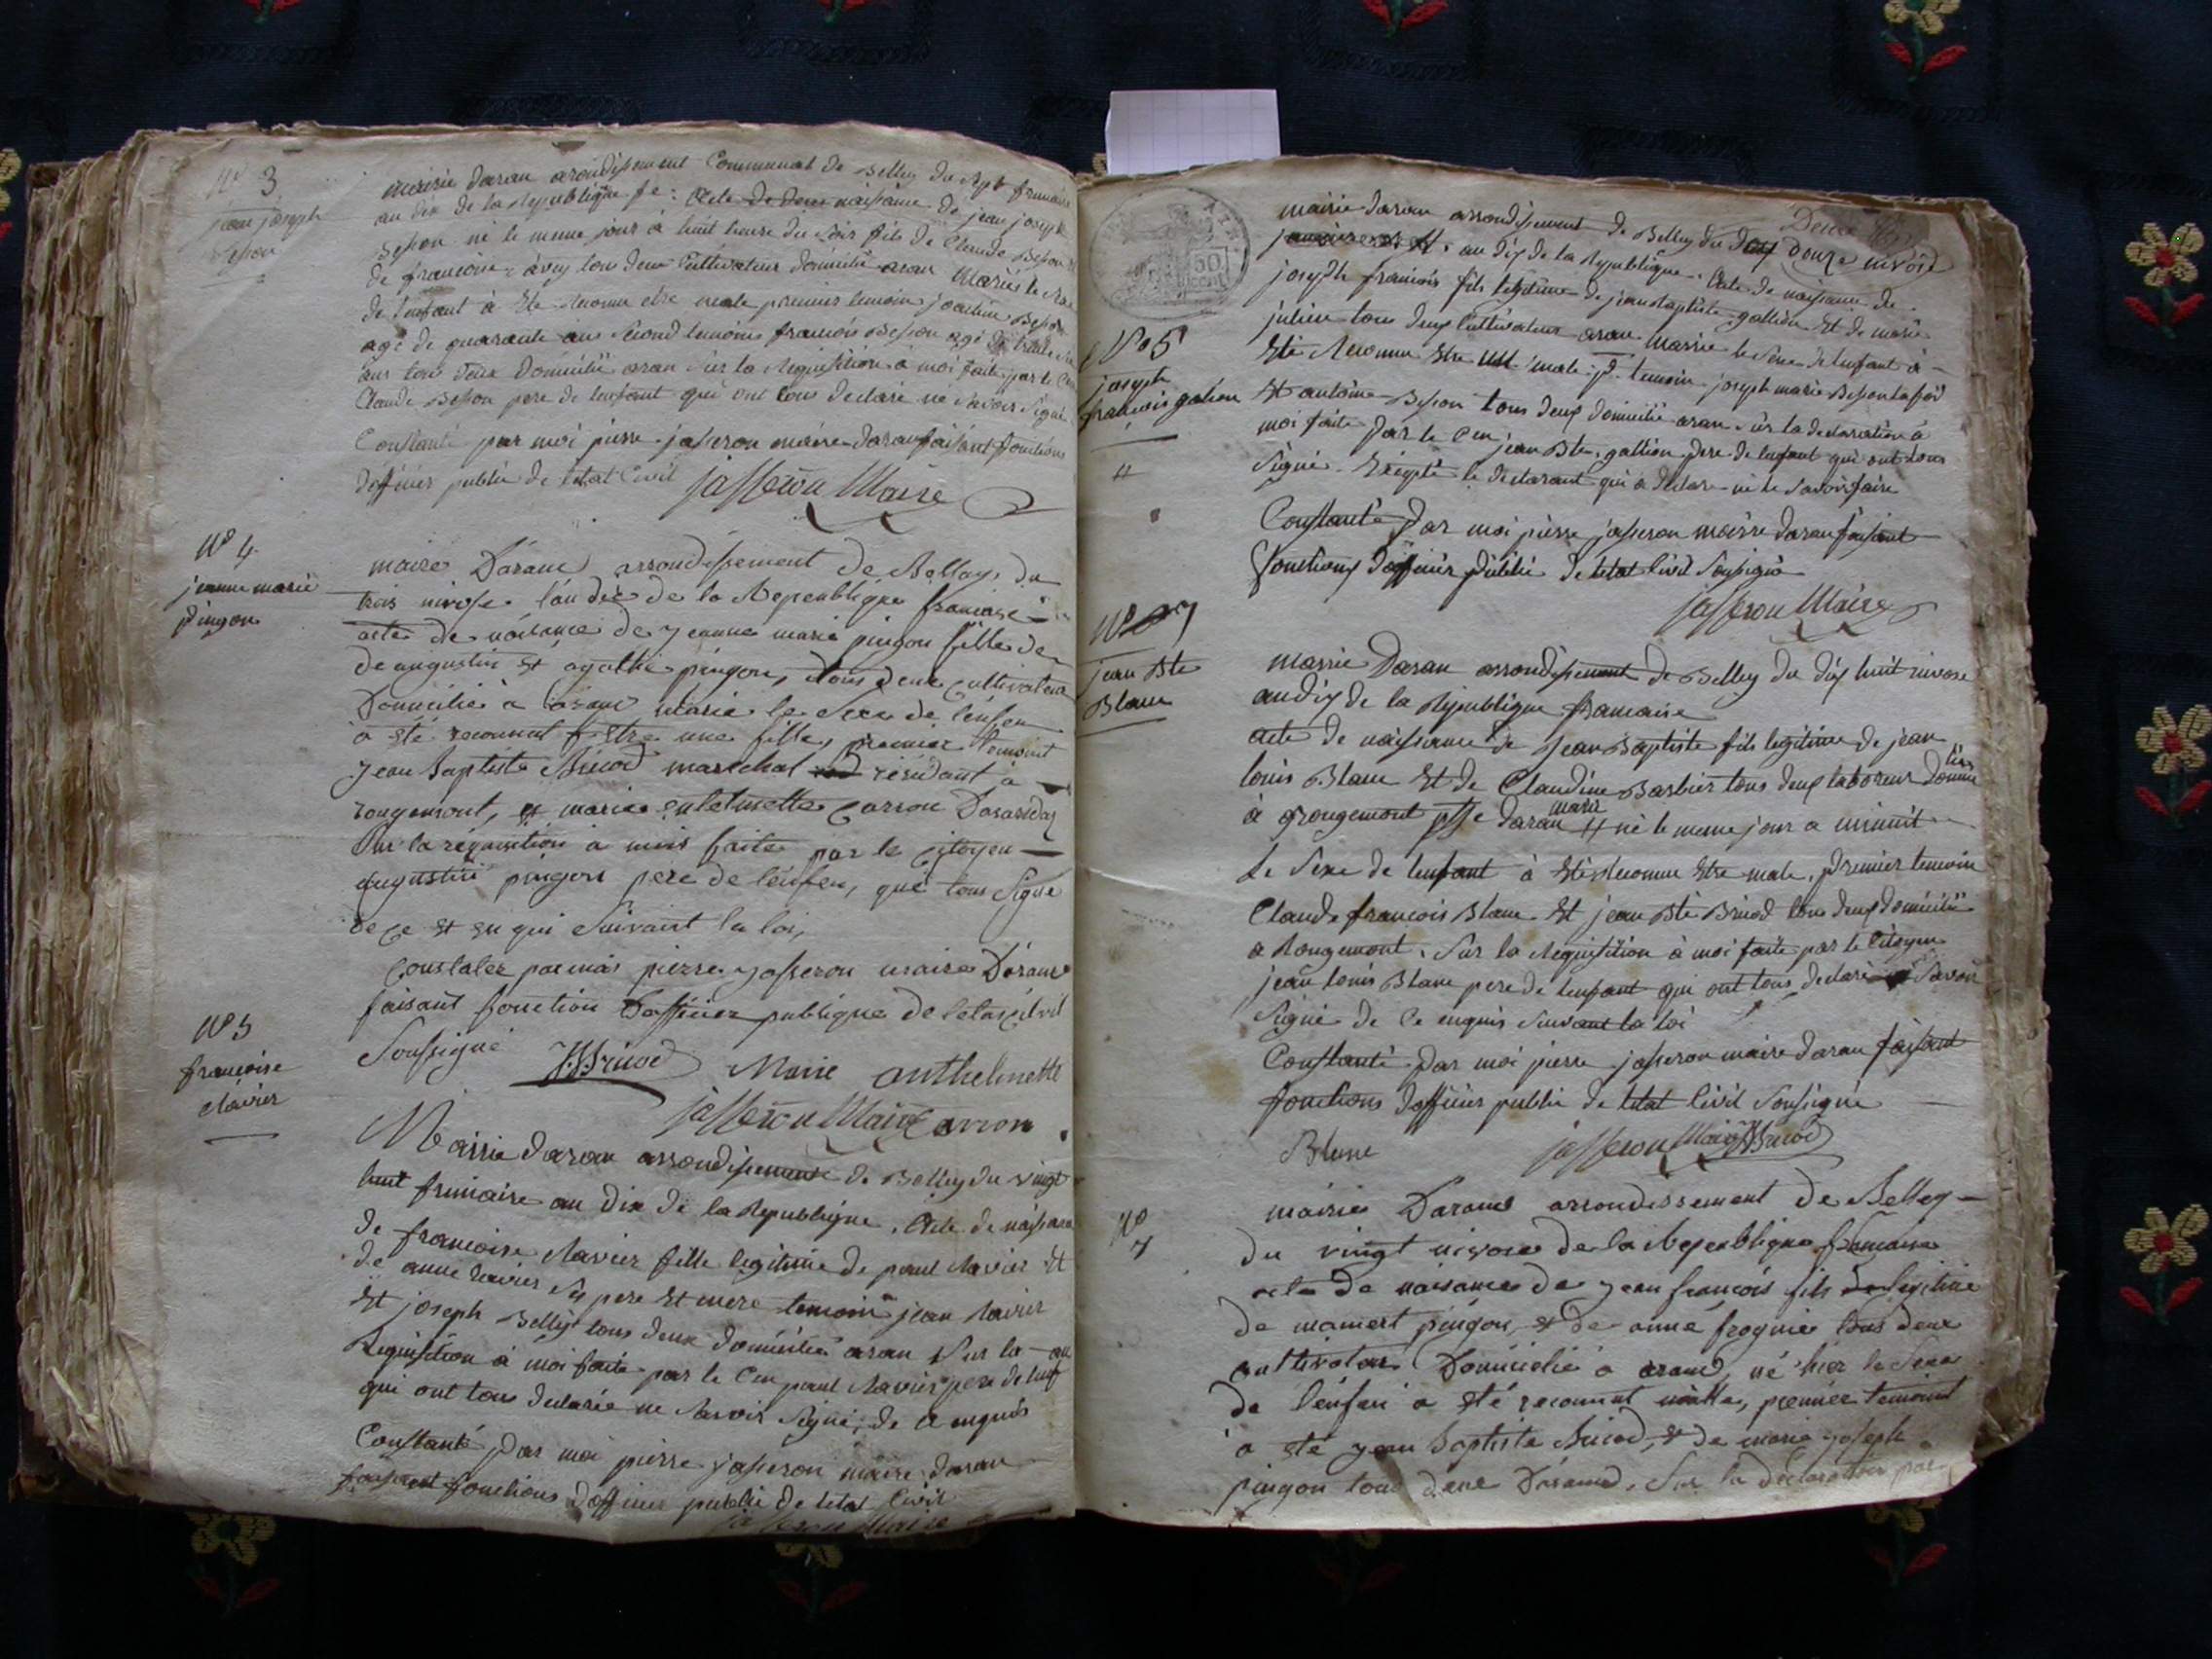 N° 3
jean joseph
Besson
mairie daran arondissement Communal de Belley du sept frimaire
an dix de la Republique fe : Acte de naissance de jean joseph
Besson né le meme jour à huit heure du soir fils de Claude Besson
de francoise tous deux Cultivateur domicilié aran Mariés le sexe
de lenfant à Eté Reconnu etre male premier temoin joachim Besson
agé de quarante ans second temoins francois Besson agé de trente
ans tous deux domicilié aran sur la Requisition à moi faite par le Cen
Claude Besson pere de lenfant qui ont tous declaré ne savoir signé
Constanté par moi pierre jasseron maire daran faisant fonctions
dofficier public de letat Civil jasseron Maire
N° 4
jeanne marie
pingon
mairie Darand arrondissement de Belley, du
trois nivose l'an dix de la Republique francaise
acte de naissance de jeanne marie pingon fille de
de augustin et agathe pingon, tous deux cultivateur
Domicilié à arand marié le Sexe de lenfen
a été reconnut Etre une fille, premier temoint
jean baptiste Bricod marechal résidant à
rougemont, et marie entelmette Carron Darand
Sur la réquisition a mois faite par le citoyen
augustin pingon pere de lenfen, que tous Signe
de ce et en qui suivant la loi,
Constatez par moi pierre jasseron maire Darand
faisant fonction Dofficier publique de letat civil
Soussigné JBBricod Marie anthelmette
jasseron Maire Carron
N° 5
francoise
Mairie daran arrondissement de Belley du vingt
huit frimaire an dix de la Republique. Acte de naissance
de francoise Navier fille legitime de paul Navier Et
de anne Navier ses pere Et mere temoin jean Navier
Et joseph Belley tous deux domicilié aran Sur la
Requisition à moi faite par le Cen paul Navier pere de lenf
qui ont tous declarée ne savoir signé ; de ce enquis
Constanté par moi pierre jasseron maire daran
faisant fonctions dofficier public de letat Civil
jasseron Maire
mairie daran arrondissement de Belley du douze nivose
an dix de la Republique. Acte de naissance de
joseph francois fils legitime de jean baptiste gallion Et de marie
julien tous deux Cultivateur aran Marrié le sexe de lenfant à
Eté Reconnu Etre male : p. temoin joseph marie Besson
N° 5
joseph
francois galion
Et antoine Besson tous deux domicilié aran sur la declaration à
moi faite par le Cen jean Bte gallion pere de lenfant qui ont tous
Signé Excepté le declarant qui a declaré ne le savoir faire
Constanté par moi pierre jasseron maire daran faisant
fonctions dofficier public de letat Civil Sousigné
jasseron Maire
N° 7
jean Bte
Blanc
Mairie Daran arrondissement de Belley du dix huit nivose
an dix de la Republique francaise
acte de naissance de jean Baptiste fils legitime de jean
louis Blanc Et de Claudine Barbier tous deux laboreur domicilié
à grougemont psse daran marié né le meme jour a minuit
le sexe de lenfant à Eté Reconnu Etre male, premier temoin
Claude francois Blanc Et jean Bte Bricod tous deux domicilié
a Rougemont. Sur la Requisition à moi faite par le Citoyen
jean louis Blanc pere de lenfant qui ont tous declaré savoir
Signé de Ce enquis suivant la loi
Constanté par moi pierre jasseron maire daran faisant
fonctions dofficier public de letat Civil Sousigné
Blanc jasseron Maire JBBricod
N°
7
mairie Darand arrondissement de Belley
du vingt nivose de la Republique francaise
acte de naisance de jean francois fils legitime
de mamert pingon, et de anne frognie tous deux
cultivateur Domicielié a arand, né hier le Sexe
de lenfen a été reconnut mâlle, premier temoint
a été jean baptiste Bricod, et de marie joseph
pingon tous deux Darand, Sur la déclaration par